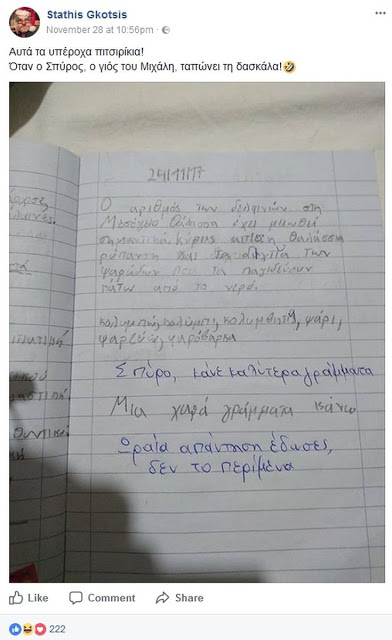 Stathis Gkotsis
November 28 at 10:56pm ·
Αυτά τα υπέροχα πιτσιρίκια!
Όταν ο Σπύρος, ο γιός του Μιχάλη, ταπώνει τη δασκάλα!🤣
24/11/17
Ο αριθμός των δελφινιών στη
Μεσόγειο Θάλασσα έχει μειωθεί
σημαντικά. Κύριες αιτίες η θαλάσσια
ρύπανση και τα δίχτυα των
ψαράδων που τα παγιδεύουν
κάτω από το νερό.
κολυμπώ, κολύμπι, κολυμβητής, ψάρι,
ψαρεύω, ψαρόβαρκα
Σπύρο, κάνε καλύτερα γράμματα
Μια χαρά γράμματα κάνω
Ωραία απάντηση έδωσες,
δεν το περίμενα
Like Comment Share
222